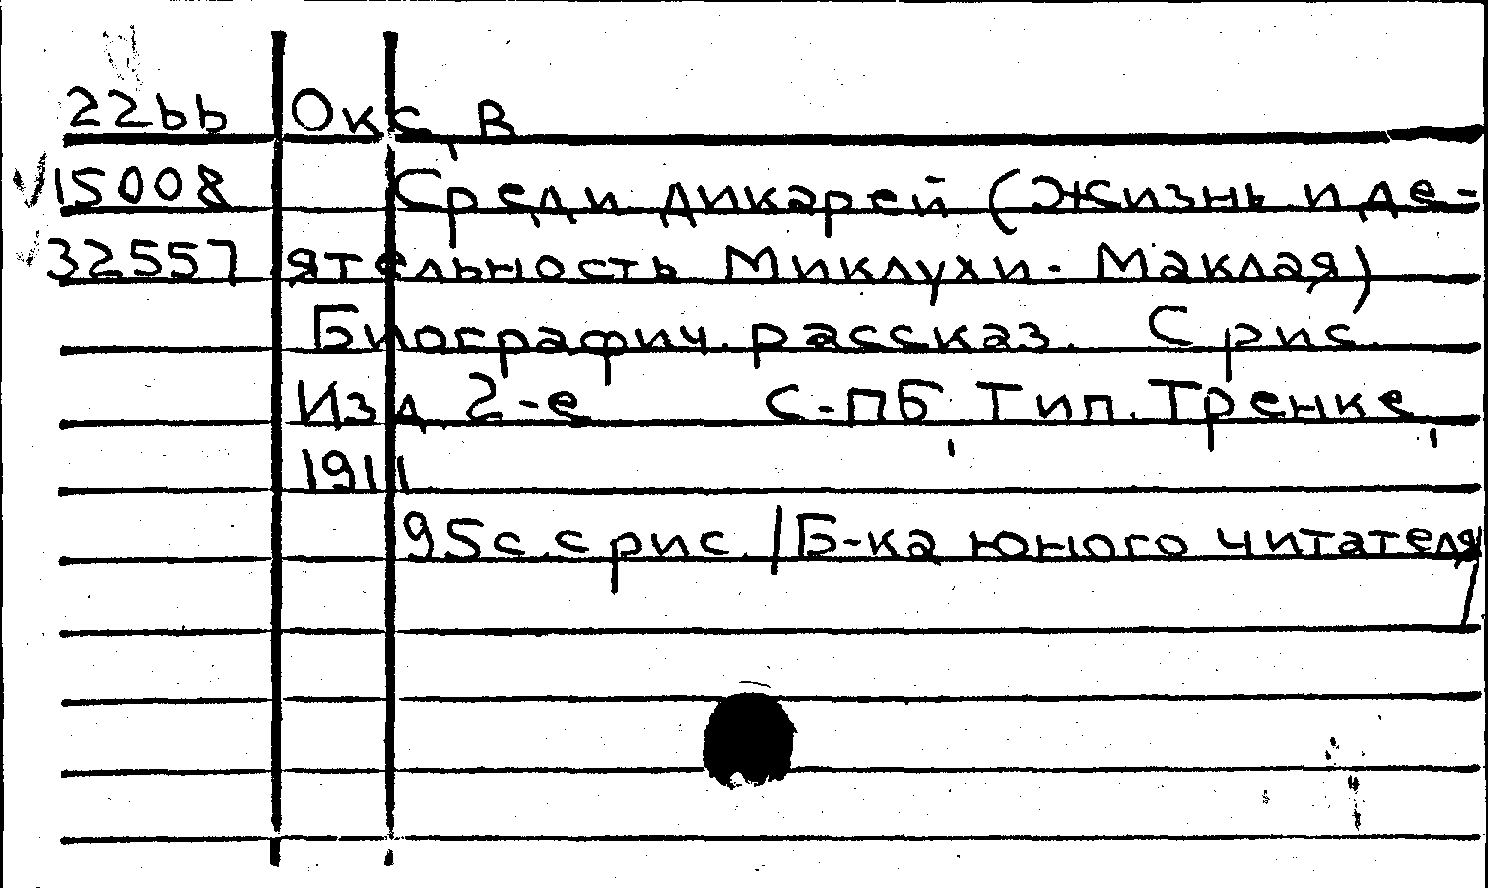 22bb Окс, В
15008 Среди дикарей (Жизнь и де-
32557 ятельность Миклухи-Маклая)
Биографич. рассказ. С рис.
Изд 2-е С-ПБ, Тип. Тренке,
1911
95с. с рис. /Б-ка юного читателя/